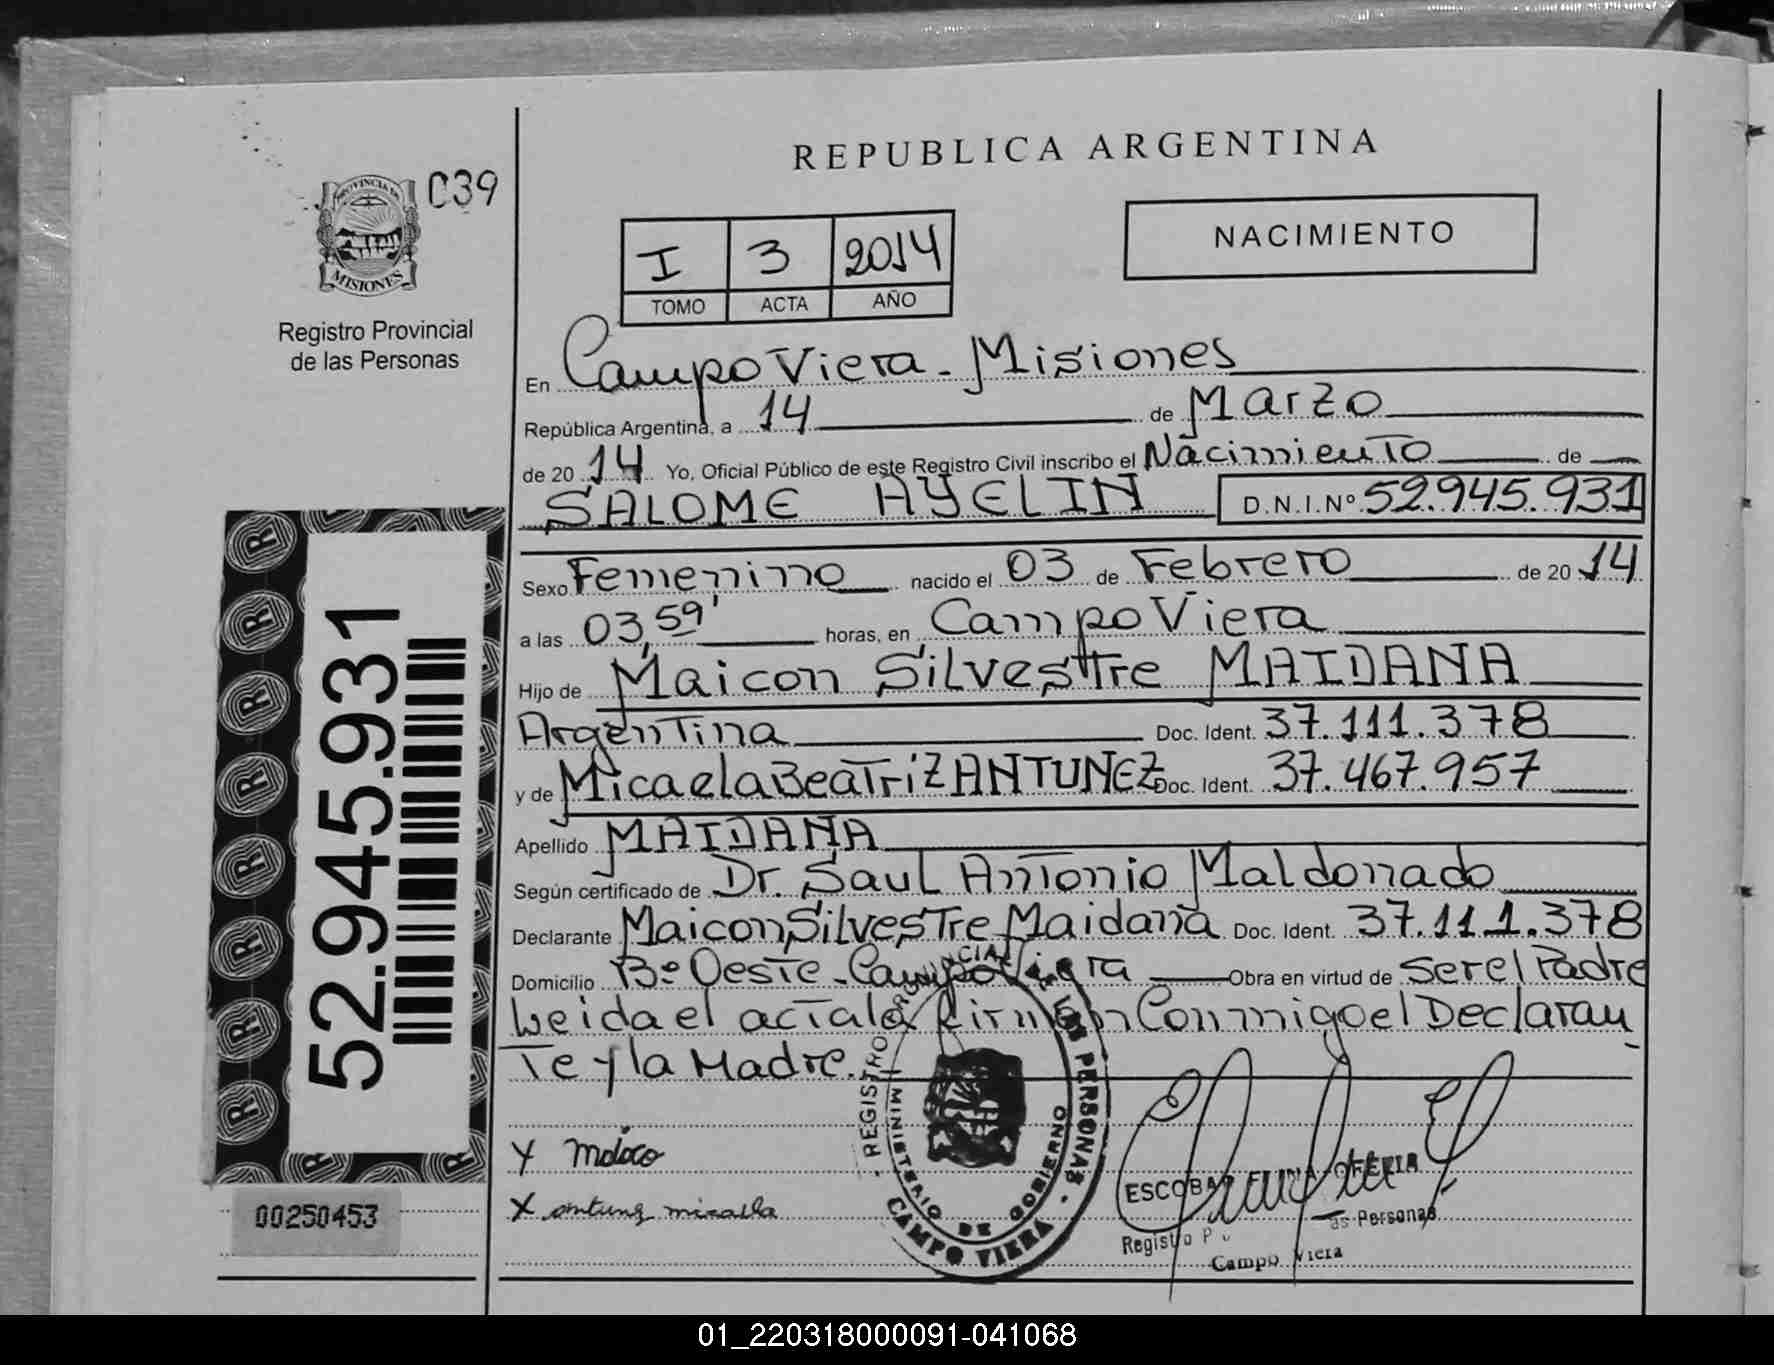 REPUBLICA ARGENTINA
039
PROVINCIA DE
MISIONES
Registro Provincial
de las Personas
I 3 2014
TOMO ACTA AÑO
NACIMIENTO
En Campo Viera - Misiones
República Argentina, a 14 de Marzo
de 20 14 Yo, Oficial Público de este Registro Civil inscribo el Nacimiento de
SALOME AYELIN D.N.I.Nº 52.945.931
Sexo Femenino nacido el 03 de Febrero de 20 14
a las 03,59' horas, en Campo Viera
Hijo de Maicon Silvestre MAIDANA
Argentina Doc. Ident. 37.111.378
y de Micaela Beatriz ANTUNEZ Doc. Ident. 37.467.957
Apellido MAIDANA
Según certificado de Dr. Saul Antonio Maldonado
Declarante Maicon Silvestre Maidana Doc. Ident. 37.111.378
Domicilio Bº Oeste - Campo Viera Obra en virtud de ser el Padre
Leida el acta la firman Conmigo el Declaran
Te y la Madre.
52.945.931
00250453
REGISTRO PROVINCIAL DE LAS PERSONAS
MINISTERIO DE GOBIERNO
CAMPO VIERA
X
X antunez micaela
ESCOBAR
Registro P as Personas
Campo Viera
01_220318000091-041068